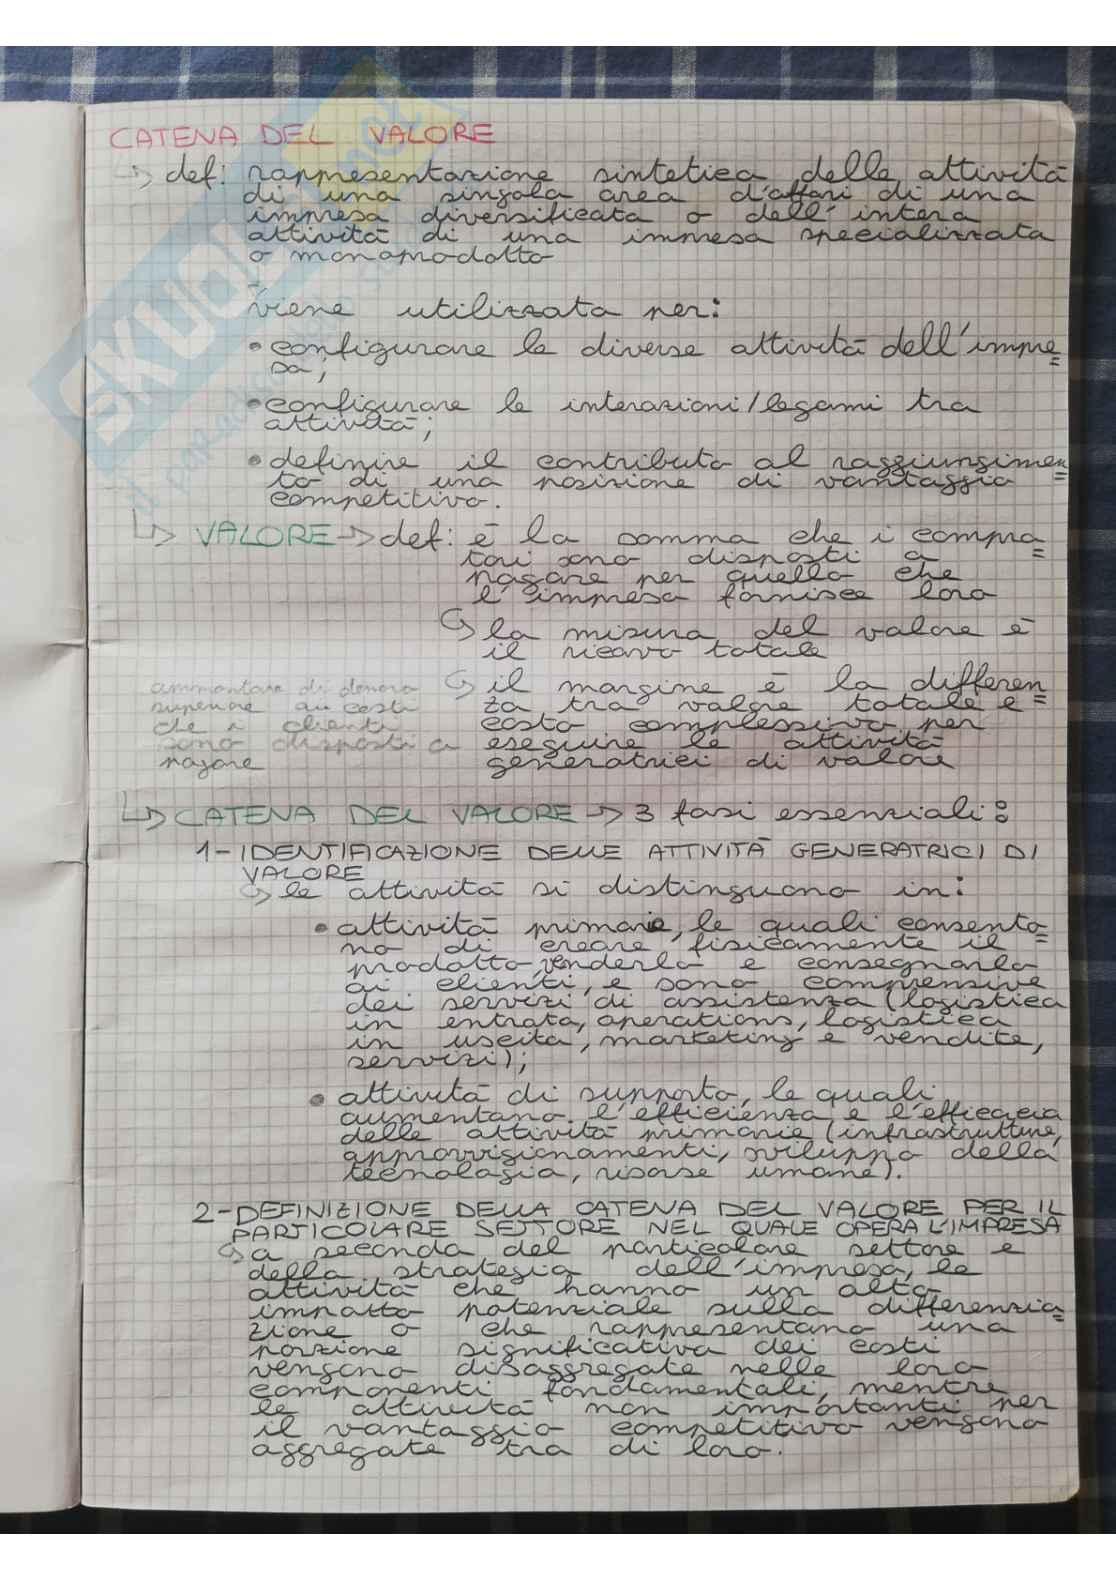 CATENA DEL VALORE
↳ def: rappresentazione sintetica delle attività
di una singola area d'affari di una
impresa diversificata o dell'intera
attività di una impresa specializzata
o monoprodotto
viene utilizzata per:
• configurare le diverse attività dell'impre=
sa;
• configurare le interazioni/legami tra
attività;
• definire il contributo al raggiungimen=
to di una posizione di vantaggio
competitivo.
↳ VALORE → def: è la somma che i compra=
tori sono disposti a
pagare per quello che
l'impresa fornisce loro
↳ la misura del valore è
il ricavo totale
↳ il margine è la differen=
za tra valore totale e
costo complessivo per
eseguire le attività
generatrici di valore
ammontare di denaro
superiore ai costi
che i clienti
sono disposti a
pagare
↳ CATENA DEL VALORE → 3 fasi essenziali:
1- IDENTIFICAZIONE DELLE ATTIVITÀ GENERATRICI DI
VALORE
↳ le attività si distinguono in:
• attività primarie, le quali consento=
no di creare fisicamente il
prodotto, venderlo e consegnarlo
ai clienti, e sono comprensive
dei servizi di assistenza (logistica
in entrata, operations, logistica
in uscita, marketing e vendite,
servizi);
• attività di supporto, le quali
aumentano l'efficienza e l'efficacia
delle attività primarie (infrastrutture,
approvvigionamenti, sviluppo della
tecnologia, risorse umane).
2- DEFINIZIONE DELLA CATENA DEL VALORE PER IL
PARTICOLARE SETTORE NEL QUALE OPERA L'IMPRESA
↳ a seconda del particolare settore e
della strategia dell'impresa, le
attività che hanno un alto
impatto potenziale sulla differenzia=
zione o che rappresentano una
porzione significativa dei costi
vengono disaggregate nelle loro
componenti fondamentali, mentre
le attività non importanti per
il vantaggio competitivo vengono
aggregate tra di loro.